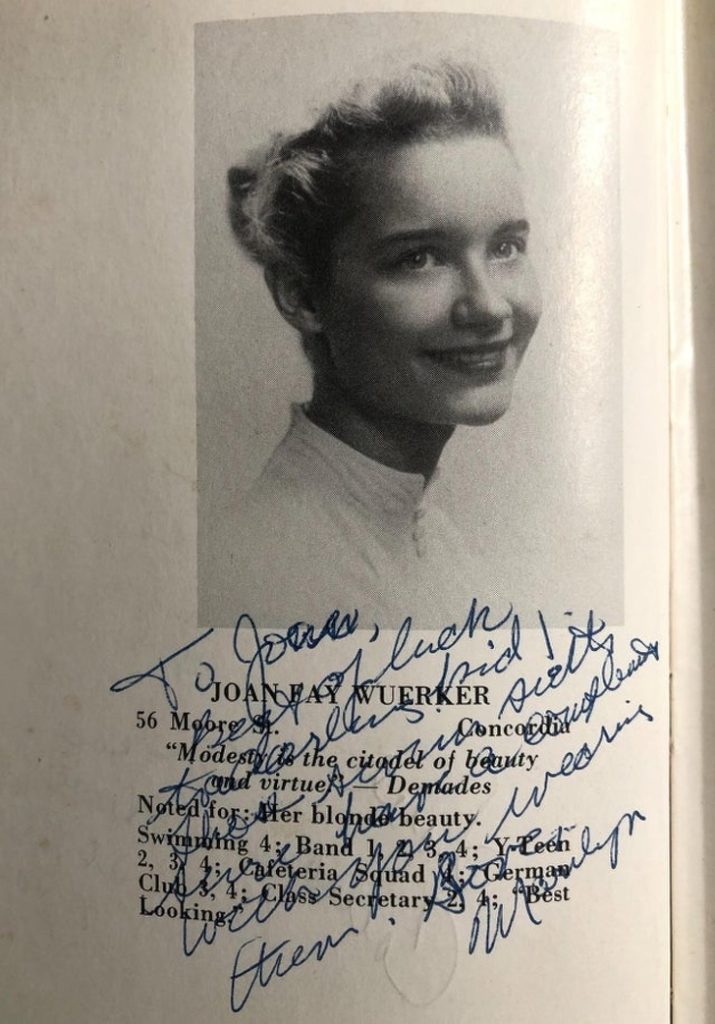 To Joan,
best of luck
to a darling kid!
JOAN FAY WUERKER
56 Moore St. Concordia
"Modesty is the citadel of beauty
and virtue" — Demades
Noted for: Her blonde beauty.
Swimming 4; Band 1, 2, 3, 4; Y-Teen
2, 3, 4; Cafeteria Squad 4; German
Club 3, 4; Class Secretary 2, 4; "Best
Looking."
with you wearing
them. Love
Marilyn